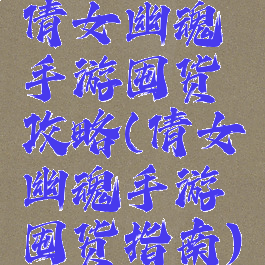 倩女幽魂
手游囤货
攻略(倩女
幽魂手游
囤货指南)